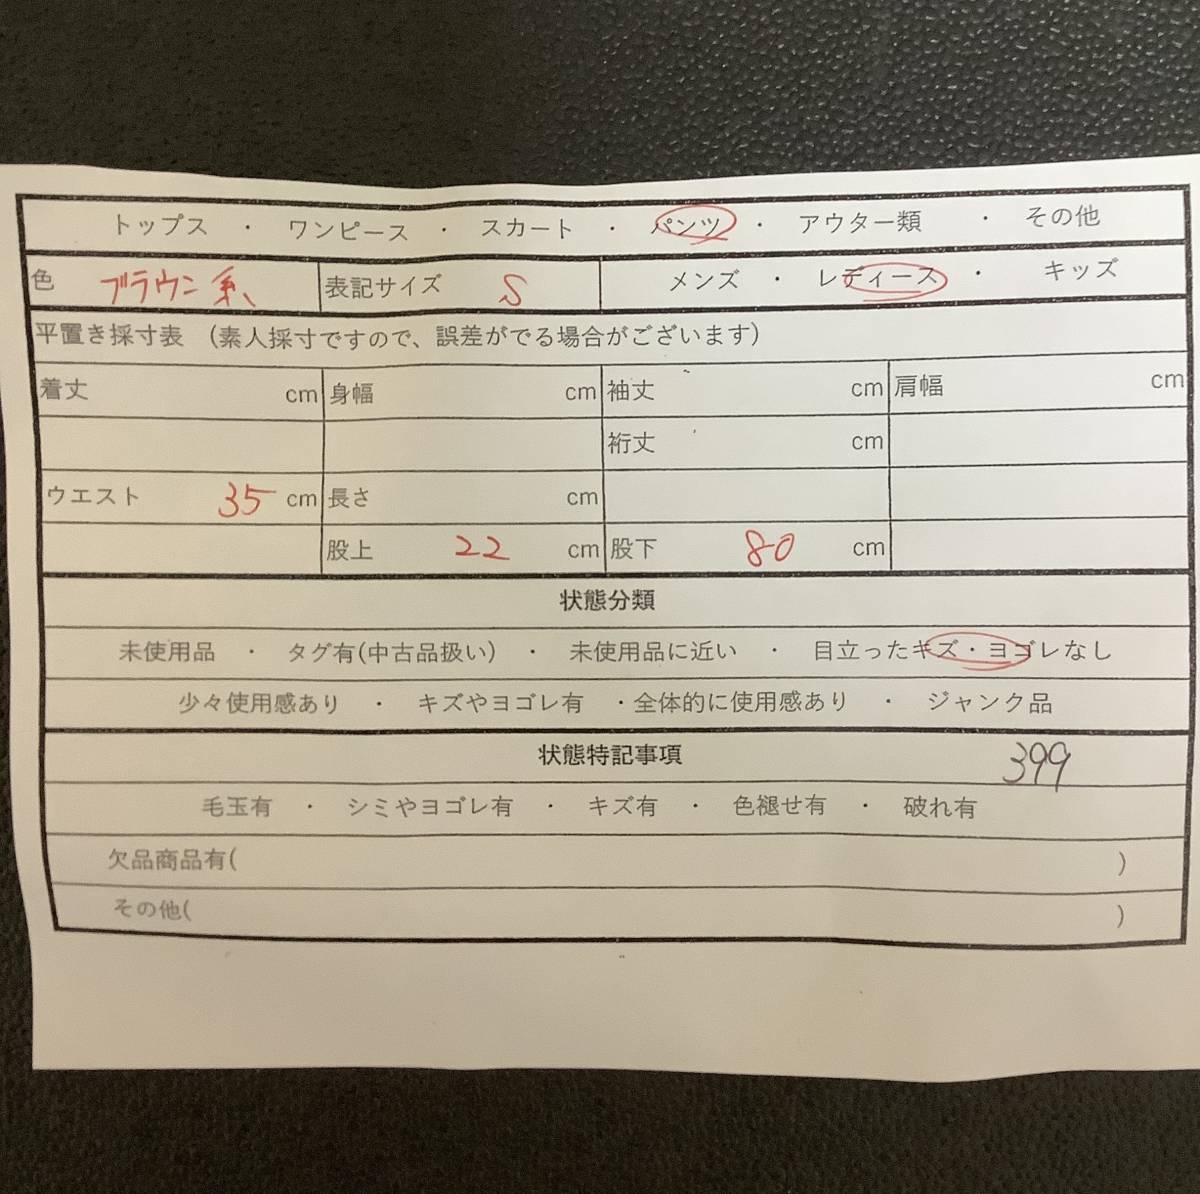 トップス ・ ワンピース ・ スカート ・ パンツ ・ アウター類 ・ その他
色 ブラウン系 表記サイズ S メンズ ・ レディース ・ キッズ
平置き採寸表 (素人採寸ですので、誤差がでる場合がございます)
着丈 cm 身幅 cm 袖丈 cm 肩幅 cm
裄丈 cm
ウエスト 35 cm 長さ cm
股上 22 cm 股下 80 cm
状態分類
未使用品 ・ タグ有(中古品扱い) ・ 未使用品に近い ・ 目立ったキズ・ヨゴレなし
少々使用感あり ・ キズやヨゴレ有 ・全体的に使用感あり ・ ジャンク品
状態特記事項 399
毛玉有 ・ シミやヨゴレ有 ・ キズ有 ・ 色褪せ有 ・ 破れ有
欠品商品有( )
その他( )